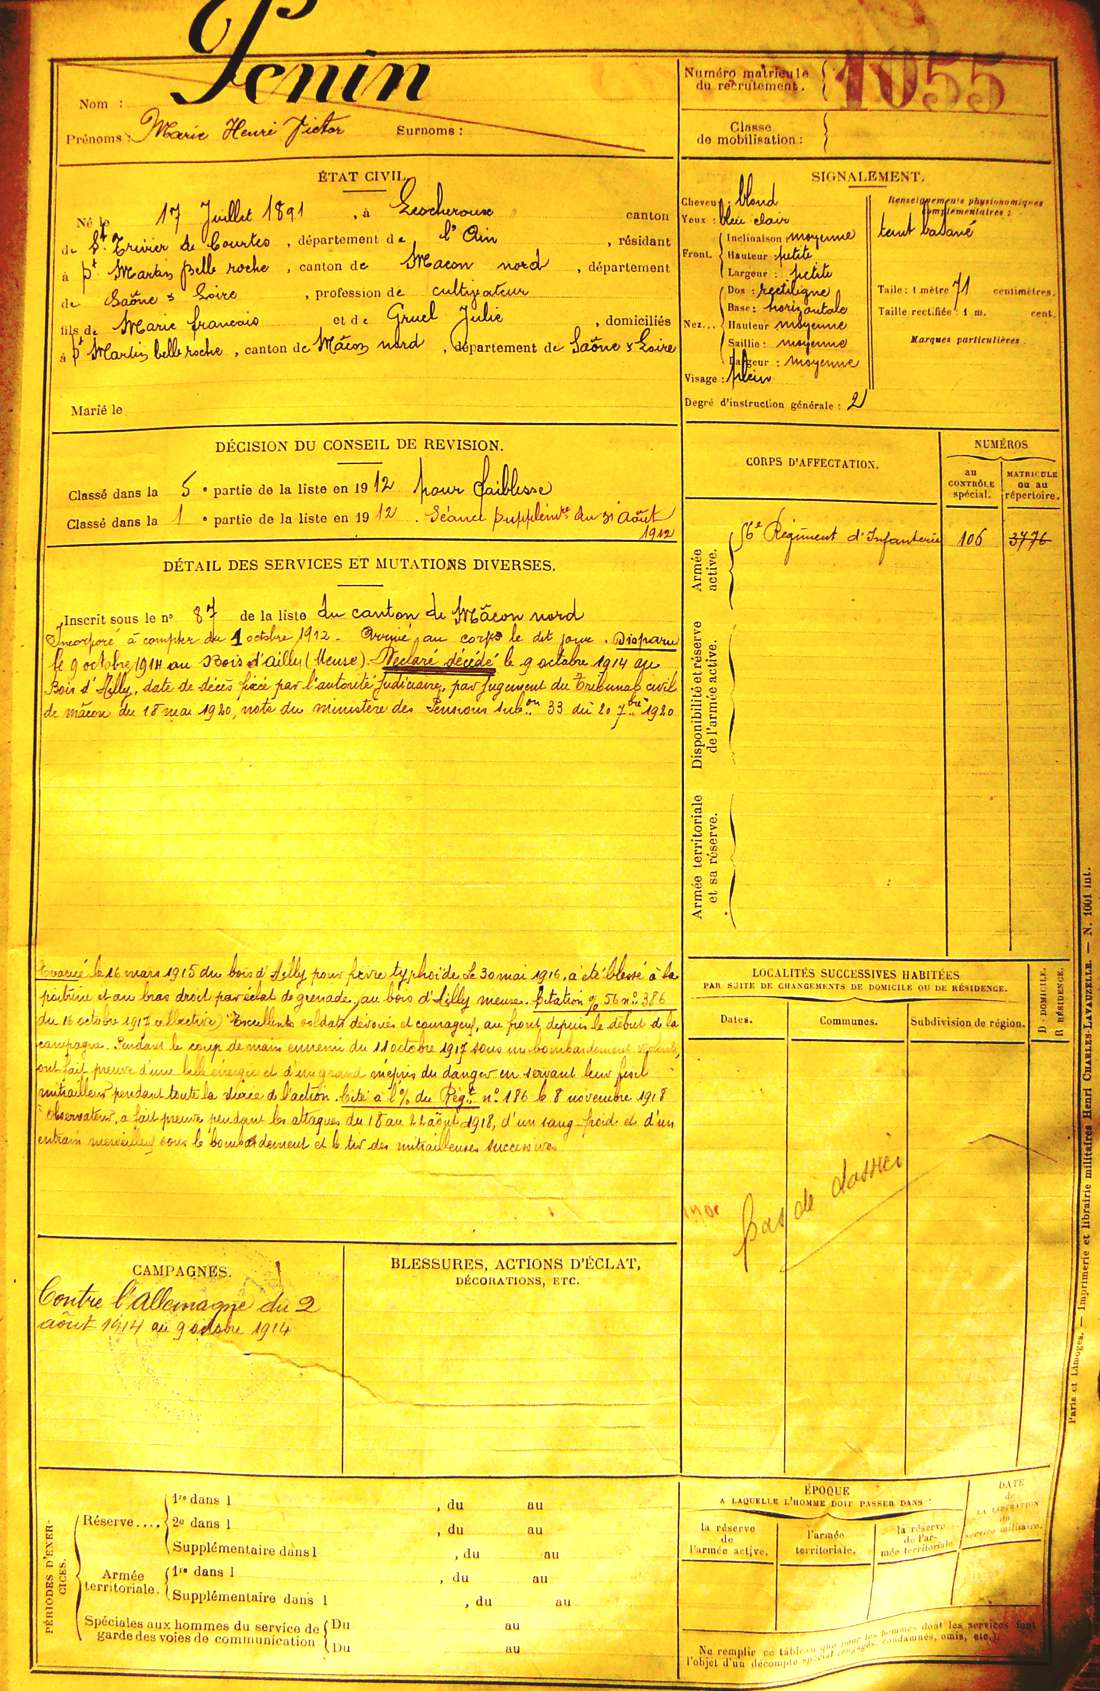 Penin
Nom :
Prénoms : Marie Henri Victor Surnoms :
Numéro matricule du recrutement. 1055
Classe de mobilisation :
ÉTAT CIVIL.
Né le 17 Juillet 1891, à Lescheroux canton
de St Trivier de Courtes, département de l'Ain, résidant
à St Martin belle roche, canton de Macon nord, département
de Saône & Loire, profession de cultivateur
fils de Marie francois et de Gruel Julie, domiciliés
à St Martin belle roche, canton de Mâcon nord, département de Saône & Loire
Marié le
SIGNALEMENT.
Cheveux : blond
Yeux : bleu clair
Front. Inclinaison moyenne
Hauteur : petite
Largeur : petite
Nez... Dos : rectiligne
Base : horizontale
Hauteur moyenne
Saillie : moyenne
Largeur : moyenne
Visage : plein
Renseignements physionomiques complémentaires :
teint basané
Taille : 1 mètre 71 centimètres.
Taille rectifiée : 1 m. cent.
Marques particulières :
Degré d'instruction générale : 2
DÉCISION DU CONSEIL DE REVISION.
Classé dans la 5e partie de la liste en 1912 pour faiblesse
Classé dans la 1e partie de la liste en 1912. Séance supplémre du 31 Août
1912
DÉTAIL DES SERVICES ET MUTATIONS DIVERSES.
Inscrit sous le no 87 de la liste du canton de Mâcon nord
Incorporé à compter du 1 octobre 1912 - Arrivé au corps le dit jour. Disparu
le 9 octobre 1914 au Bois d'ailly (Meuse) Déclaré décédé le 9 octobre 1914 au
Bois d'Ailly, date de décès fixée par l'autorité Judiciaire, par Jugement du Tribunal civil
de mâcon du 18 mai 1920, note du ministère des Pensions 33 du 20 7bre 1920
Evacué le 16 mars 1915 du bois d'Ailly pour fièvre typhoïde. Le 30 mai 1916, a été blessé à la
poitrine et au bras droit par éclat de grenade, au bois d'Ailly meuse. Citation 56 no 386
du 16 octobre 1917 collective) "Excellents soldats dévoués et courageux, au front depuis le début de la
campagne. Pendant le coup de main ennemi du 11 octobre 1917 sous un bombardement violent,
ont fait preuve d'une belle énergie et d'un grand mépris du danger en servant leur fusil
mitrailleur pendant toute la durée de l'action. Cité à l'o/ du Régt no 186 le 8 novembre 1918
"Observateur, a fait preuve pendant les attaques du 18 au 22 août 1918, d'un sang-froid et d'un
entrain merveilleux sous le bombardement et le tir des mitrailleuses successives
CORPS D'AFFECTATION.
NUMÉROS
au CONTRÔLE spécial.
MATRICULE ou au répertoire.
Armée active.
56e Régiment d'Infanterie 106 3776
Disponibilité et réserve de l'armée active.
Armée territoriale et sa réserve.
LOCALITÉS SUCCESSIVES HABITÉES
PAR SUITE DE CHANGEMENTS DE DOMICILE OU DE RÉSIDENCE.
Dates. Communes. Subdivision de région.
D - DOMICILE.
R - RÉSIDENCE.
pas de dossier
CAMPAGNES.
Contre l'Allemagne du 2
août 1914 au 9 octobre 1914
BLESSURES, ACTIONS D'ÉCLAT,
DÉCORATIONS, ETC.
PÉRIODES D'EXERCICES.
Réserve....
1re dans l , du au
2e dans l , du au
Supplémentaire dans l , du au
Armée territoriale.
1re dans l , du au
Supplémentaire dans l , du au
Spéciales aux hommes du service de garde des voies de communication
Du au
Du au
ÉPOQUE
A LAQUELLE L'HOMME DOIT PASSER DANS :
la réserve de l'armée active.
l'armée territoriale.
la réserve de l'armée territoriale.
DATE de LA LIBÉRATION du service militaire.
Ne remplir ce tableau que pour les hommes dont les services font
l'objet d'un décompte spécial (engagés, condamnés, omis, etc.).
Paris et Limoges. — Imprimerie et librairie militaires Henri CHARLES-LAVAUZELLE. — N. 1001 int.